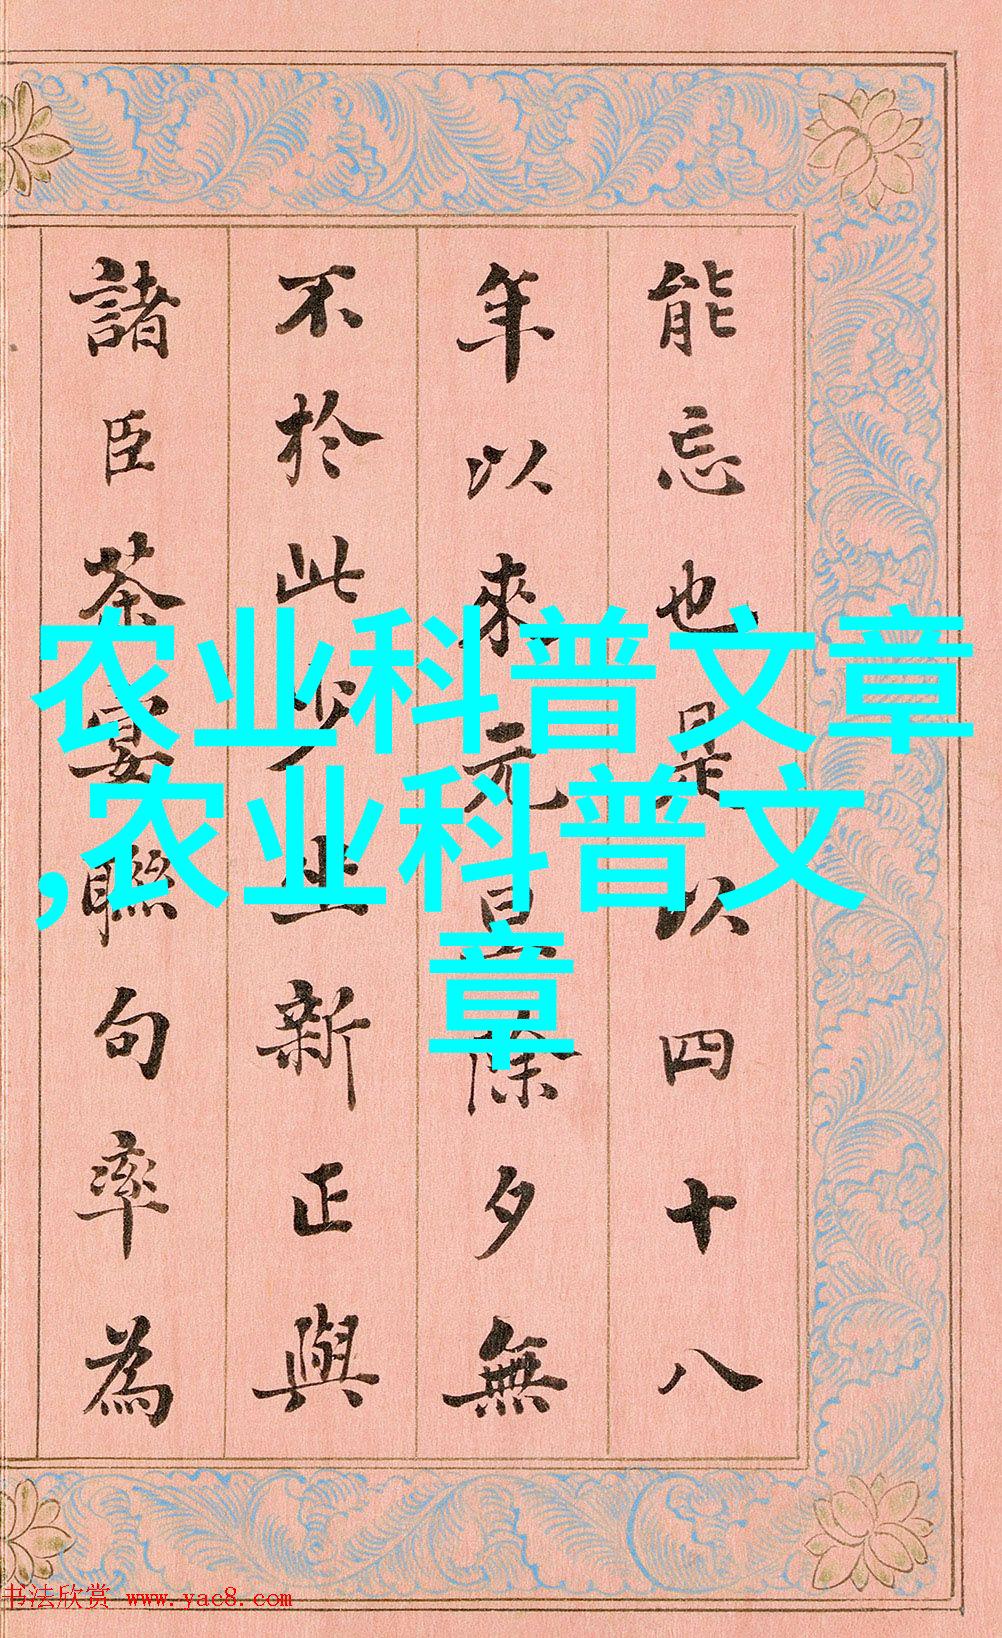 能忘也是以四十八
年以來元旦除夕無
不於此少坐新正與
諸臣茶宴聯句率為
农业科普文章
,农业科普文
章
书法欣赏 www.yac8.com